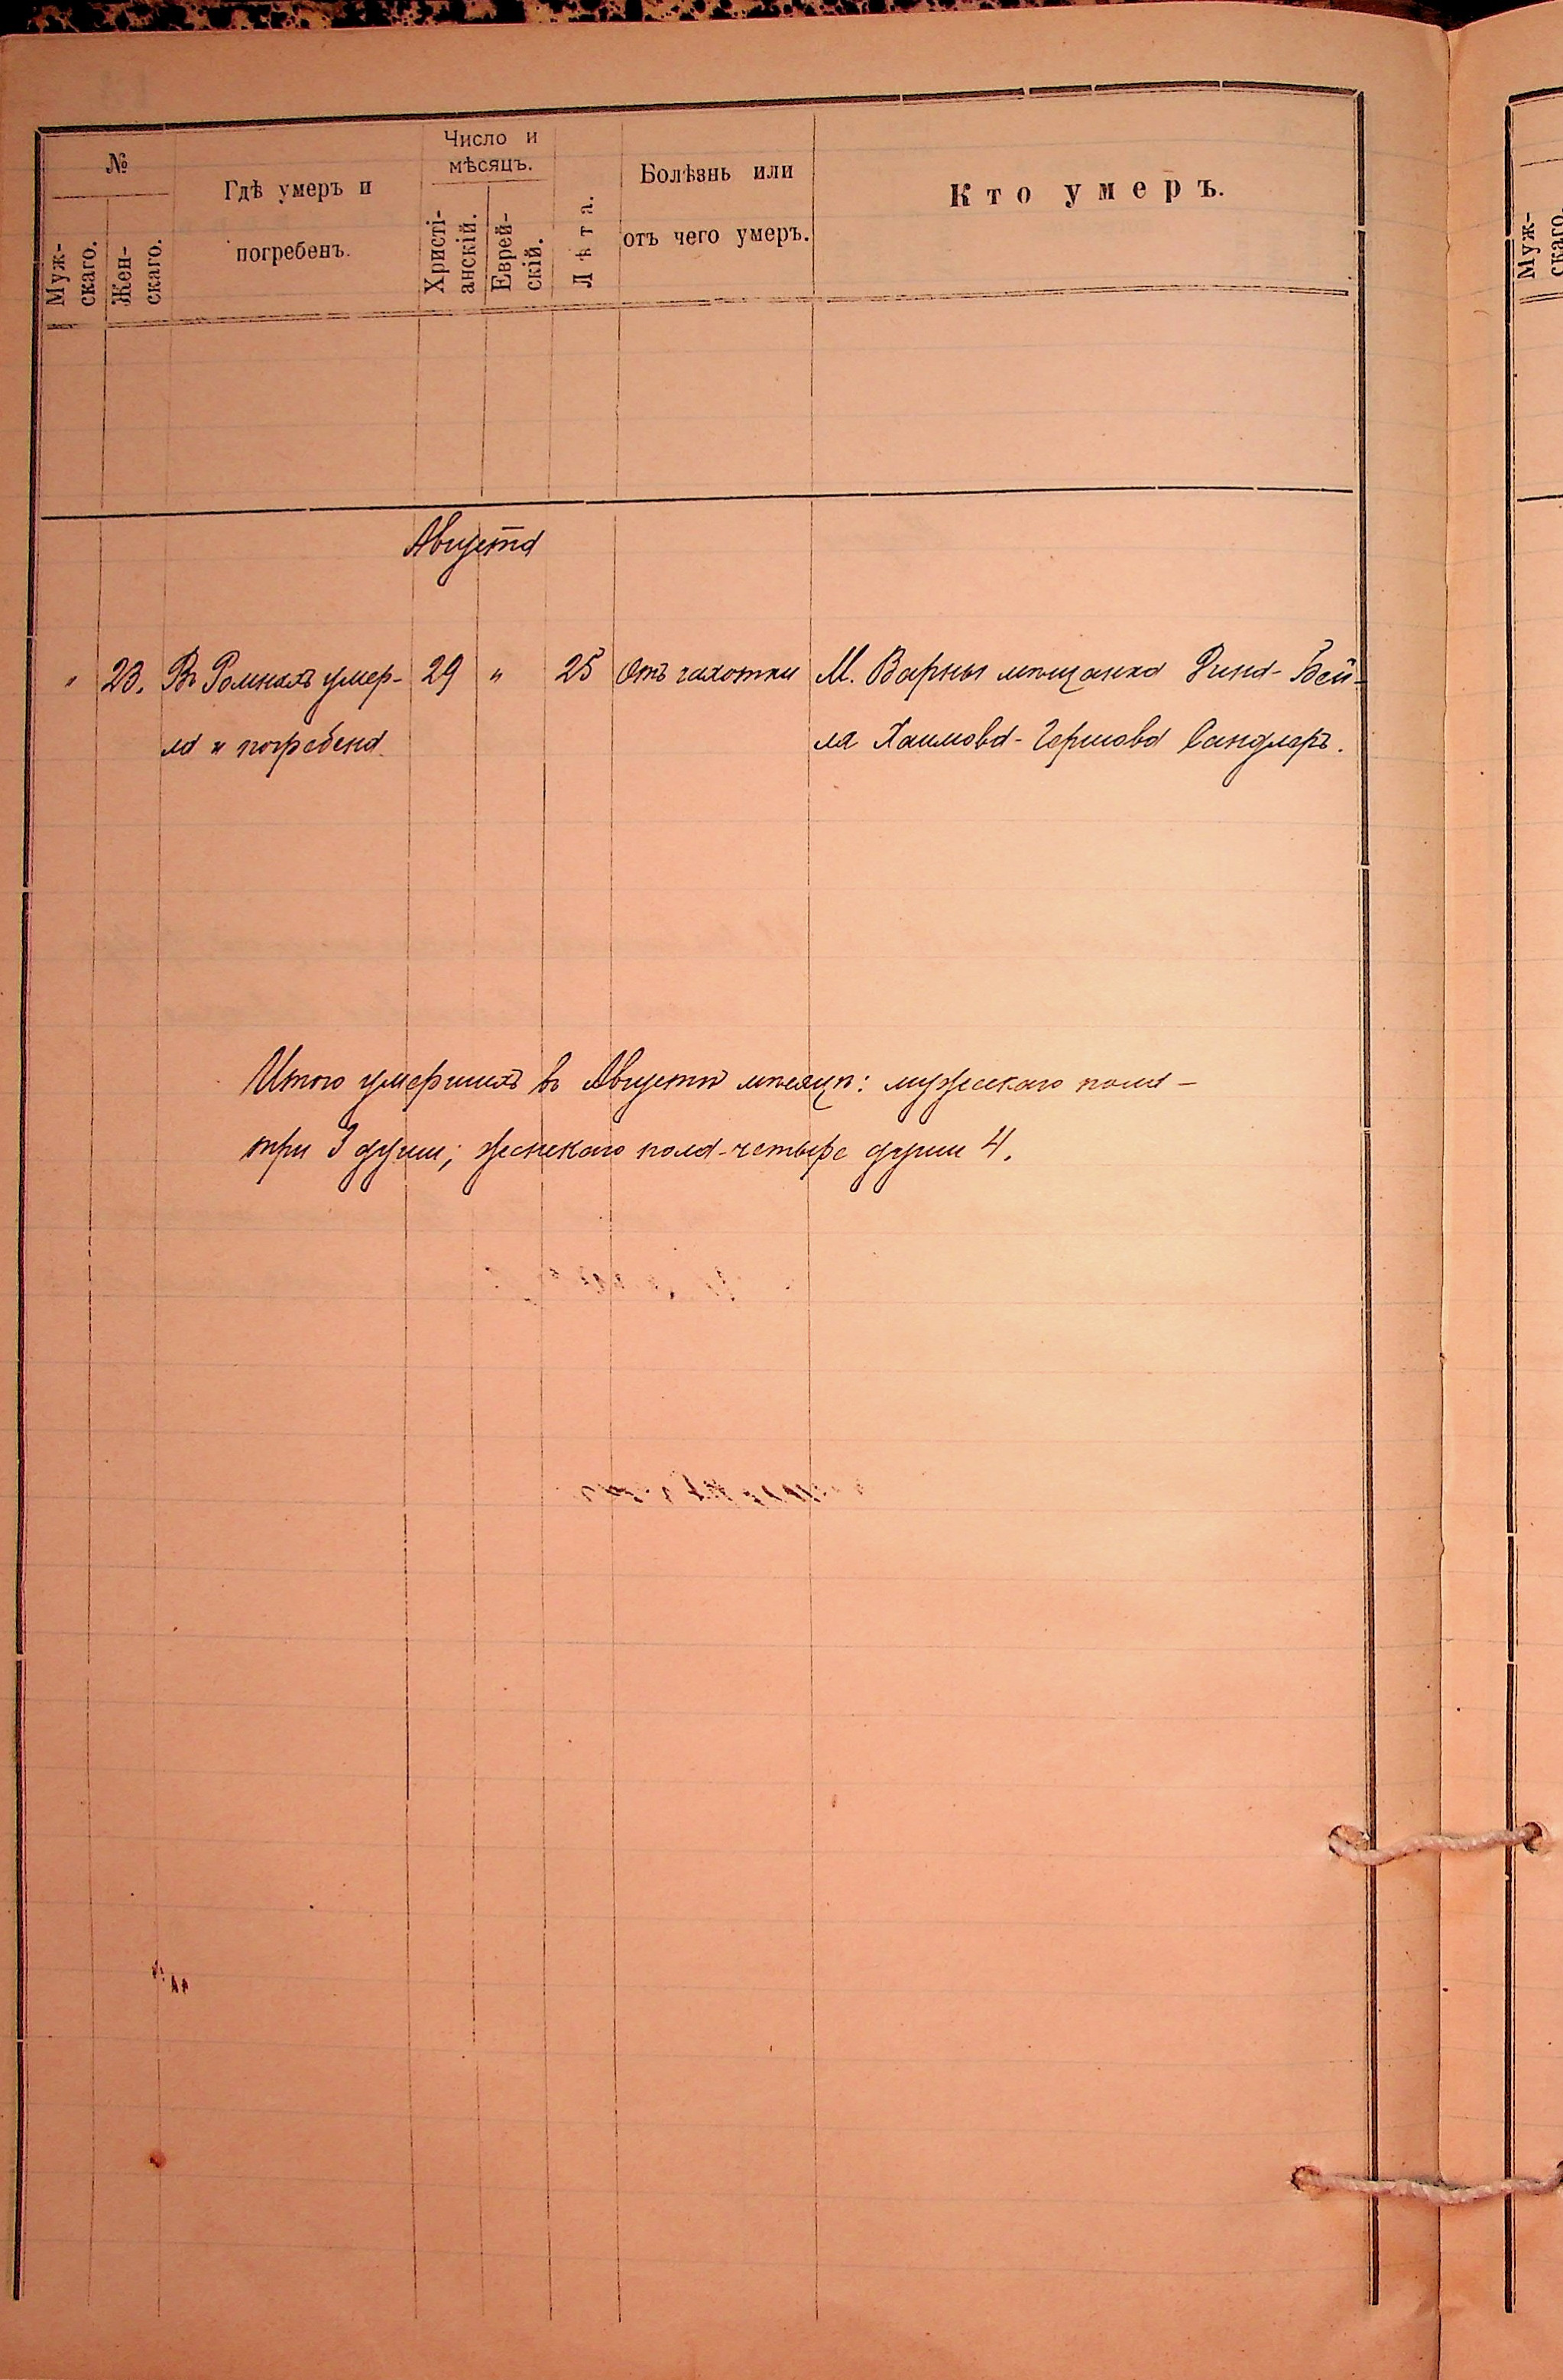 №
Муж-
скаго.
Жен-
скаго.
Гдѣ умеръ и
погребенъ.
Число и
мѣсяцъ.
Христі-
анскій.
Еврей-
скій.
Лѣта.
Болѣзнь или
отъ чего умеръ.
Кто умеръ.
Августа
" 23. Въ Ромнахъ умер- 29 " 25 Отъ чахотки М. Варны мѣщанка Дина-Бей-
ла и погребена ля Хаимова-Гершова Сандлеръ.
Итого умершихъ въ Августѣ мѣсяцѣ: мужескаго пола -
три 3 души; женскаго пола-четыре души 4.
Муж-
скаго.